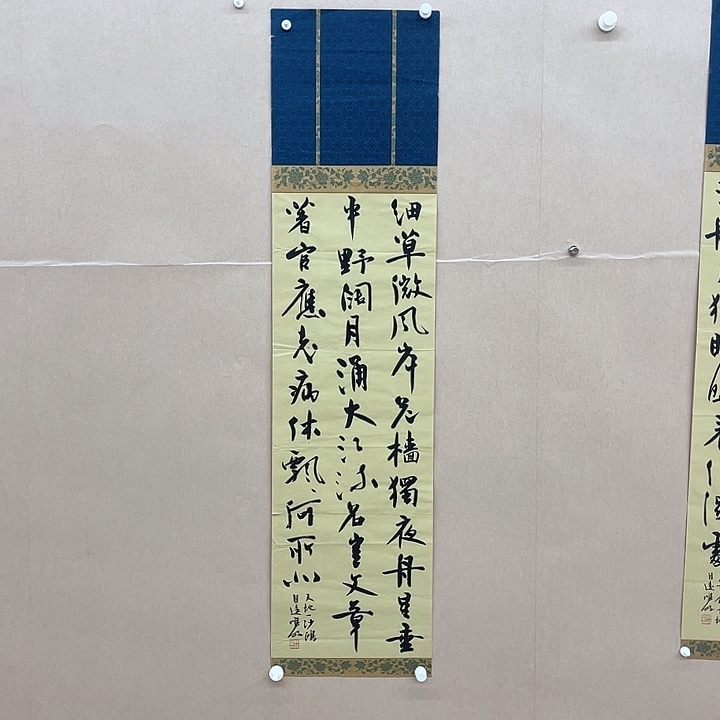 細草微風岸危檣獨夜舟星垂
平野闊月涌大江流名豈文章
著官應老病休飄〻何所似
天地一沙鷗